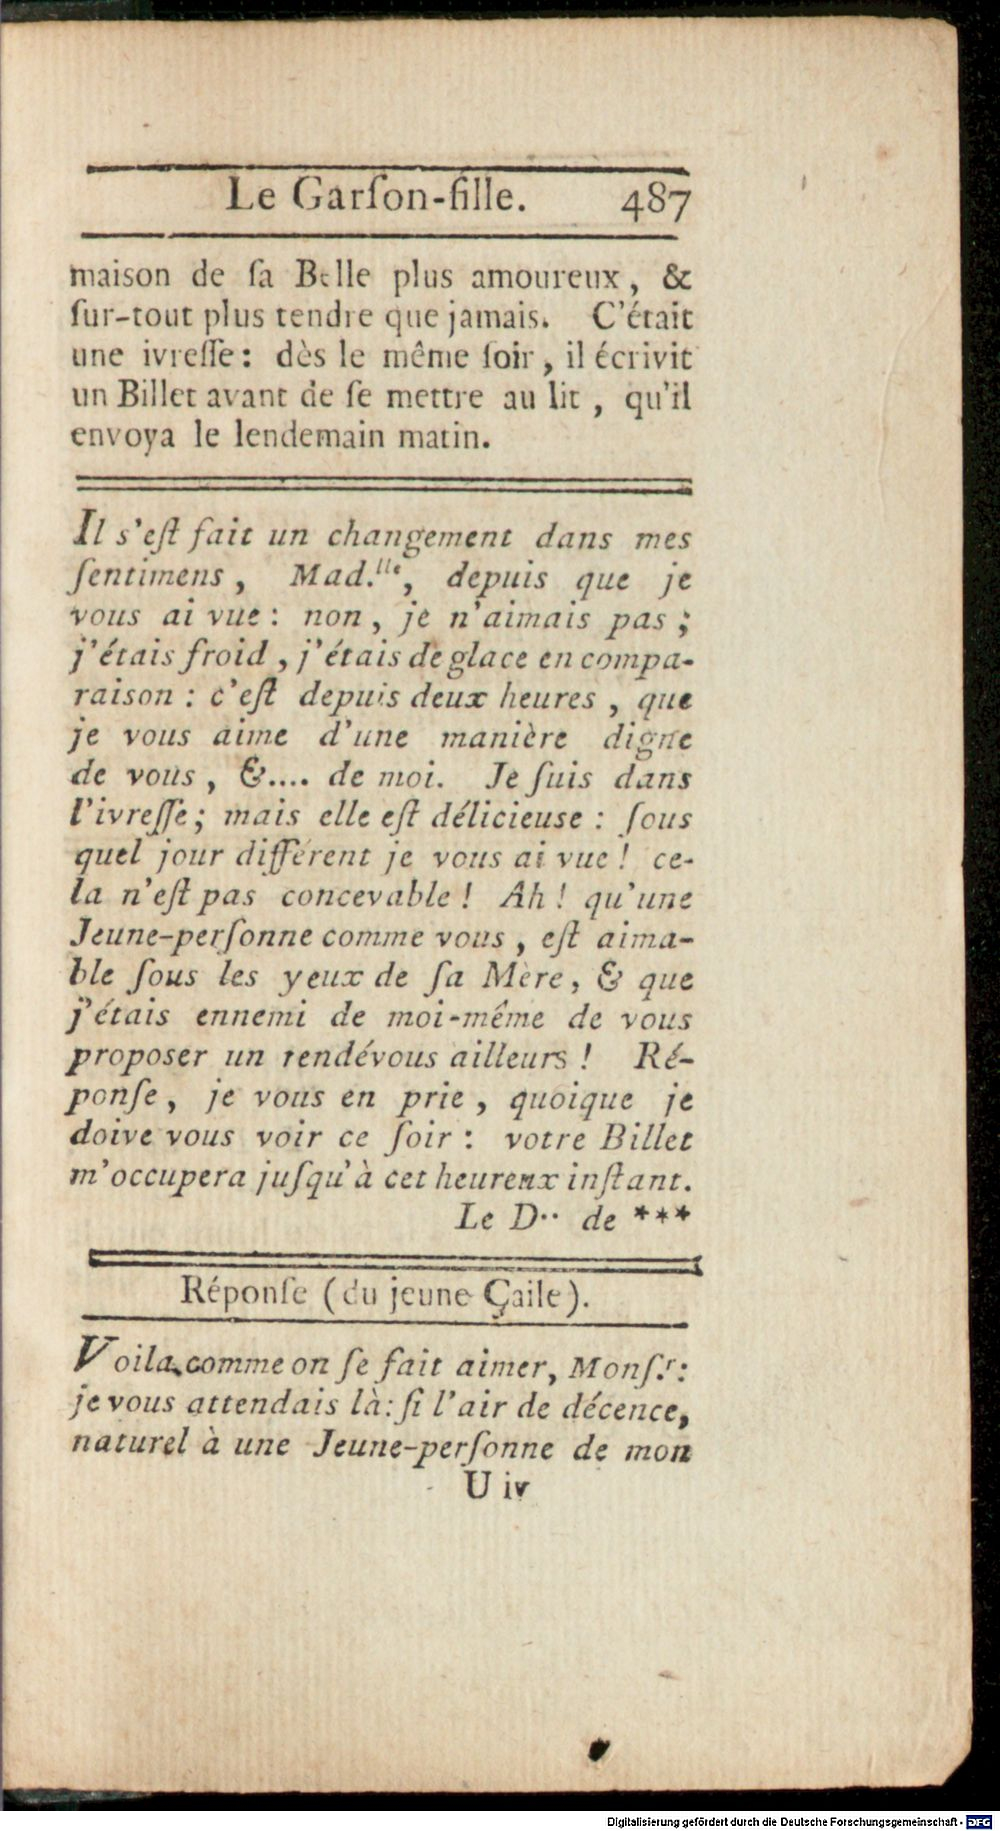 Le Garſon-fille. 487
maison de ſa Belle plus amoureux, &
ſur-tout plus tendre que jamais. C'était
une ivreſſe: dès le même ſoir, il écrivit
un Billet avant de ſe mettre au lit, qu'il
envoya le lendemain matin.
Il s'eſt fait un changement dans mes
ſentimens, Mad.lle, depuis que je
vous ai vue: non, je n'aimais pas;
j'étais froid, j'étais de glace en compa-
raison: c'eſt depuis deux heures, que
je vous aime d'une manière digne
de vous, &.... de moi. Je ſuis dans
l'ivreſſe; mais elle eſt délicieuse: ſous
quel jour différent je vous ai vue! ce-
la n'eſt pas concevable! Ah! qu'une
Jeune-perſonne comme vous, eſt aima-
ble ſous les yeux de ſa Mère, & que
j'étais ennemi de moi-même de vous
proposer un rendévous ailleurs! Ré-
ponſe, je vous en prie, quoique je
doive vous voir ce ſoir: votre Billet
m'occupera juſqu'à cet heureux inſtant.
Le D·· de ***
Réponſe (du jeune Çaile).
Voila comme on ſe fait aimer, Monſ.r:
je vous attendais là: ſi l'air de décence,
naturel à une Jeune-perſonne de mon
U iv
Digitalisierung gefördert durch die Deutsche Forschungsgemeinschaft - DFG